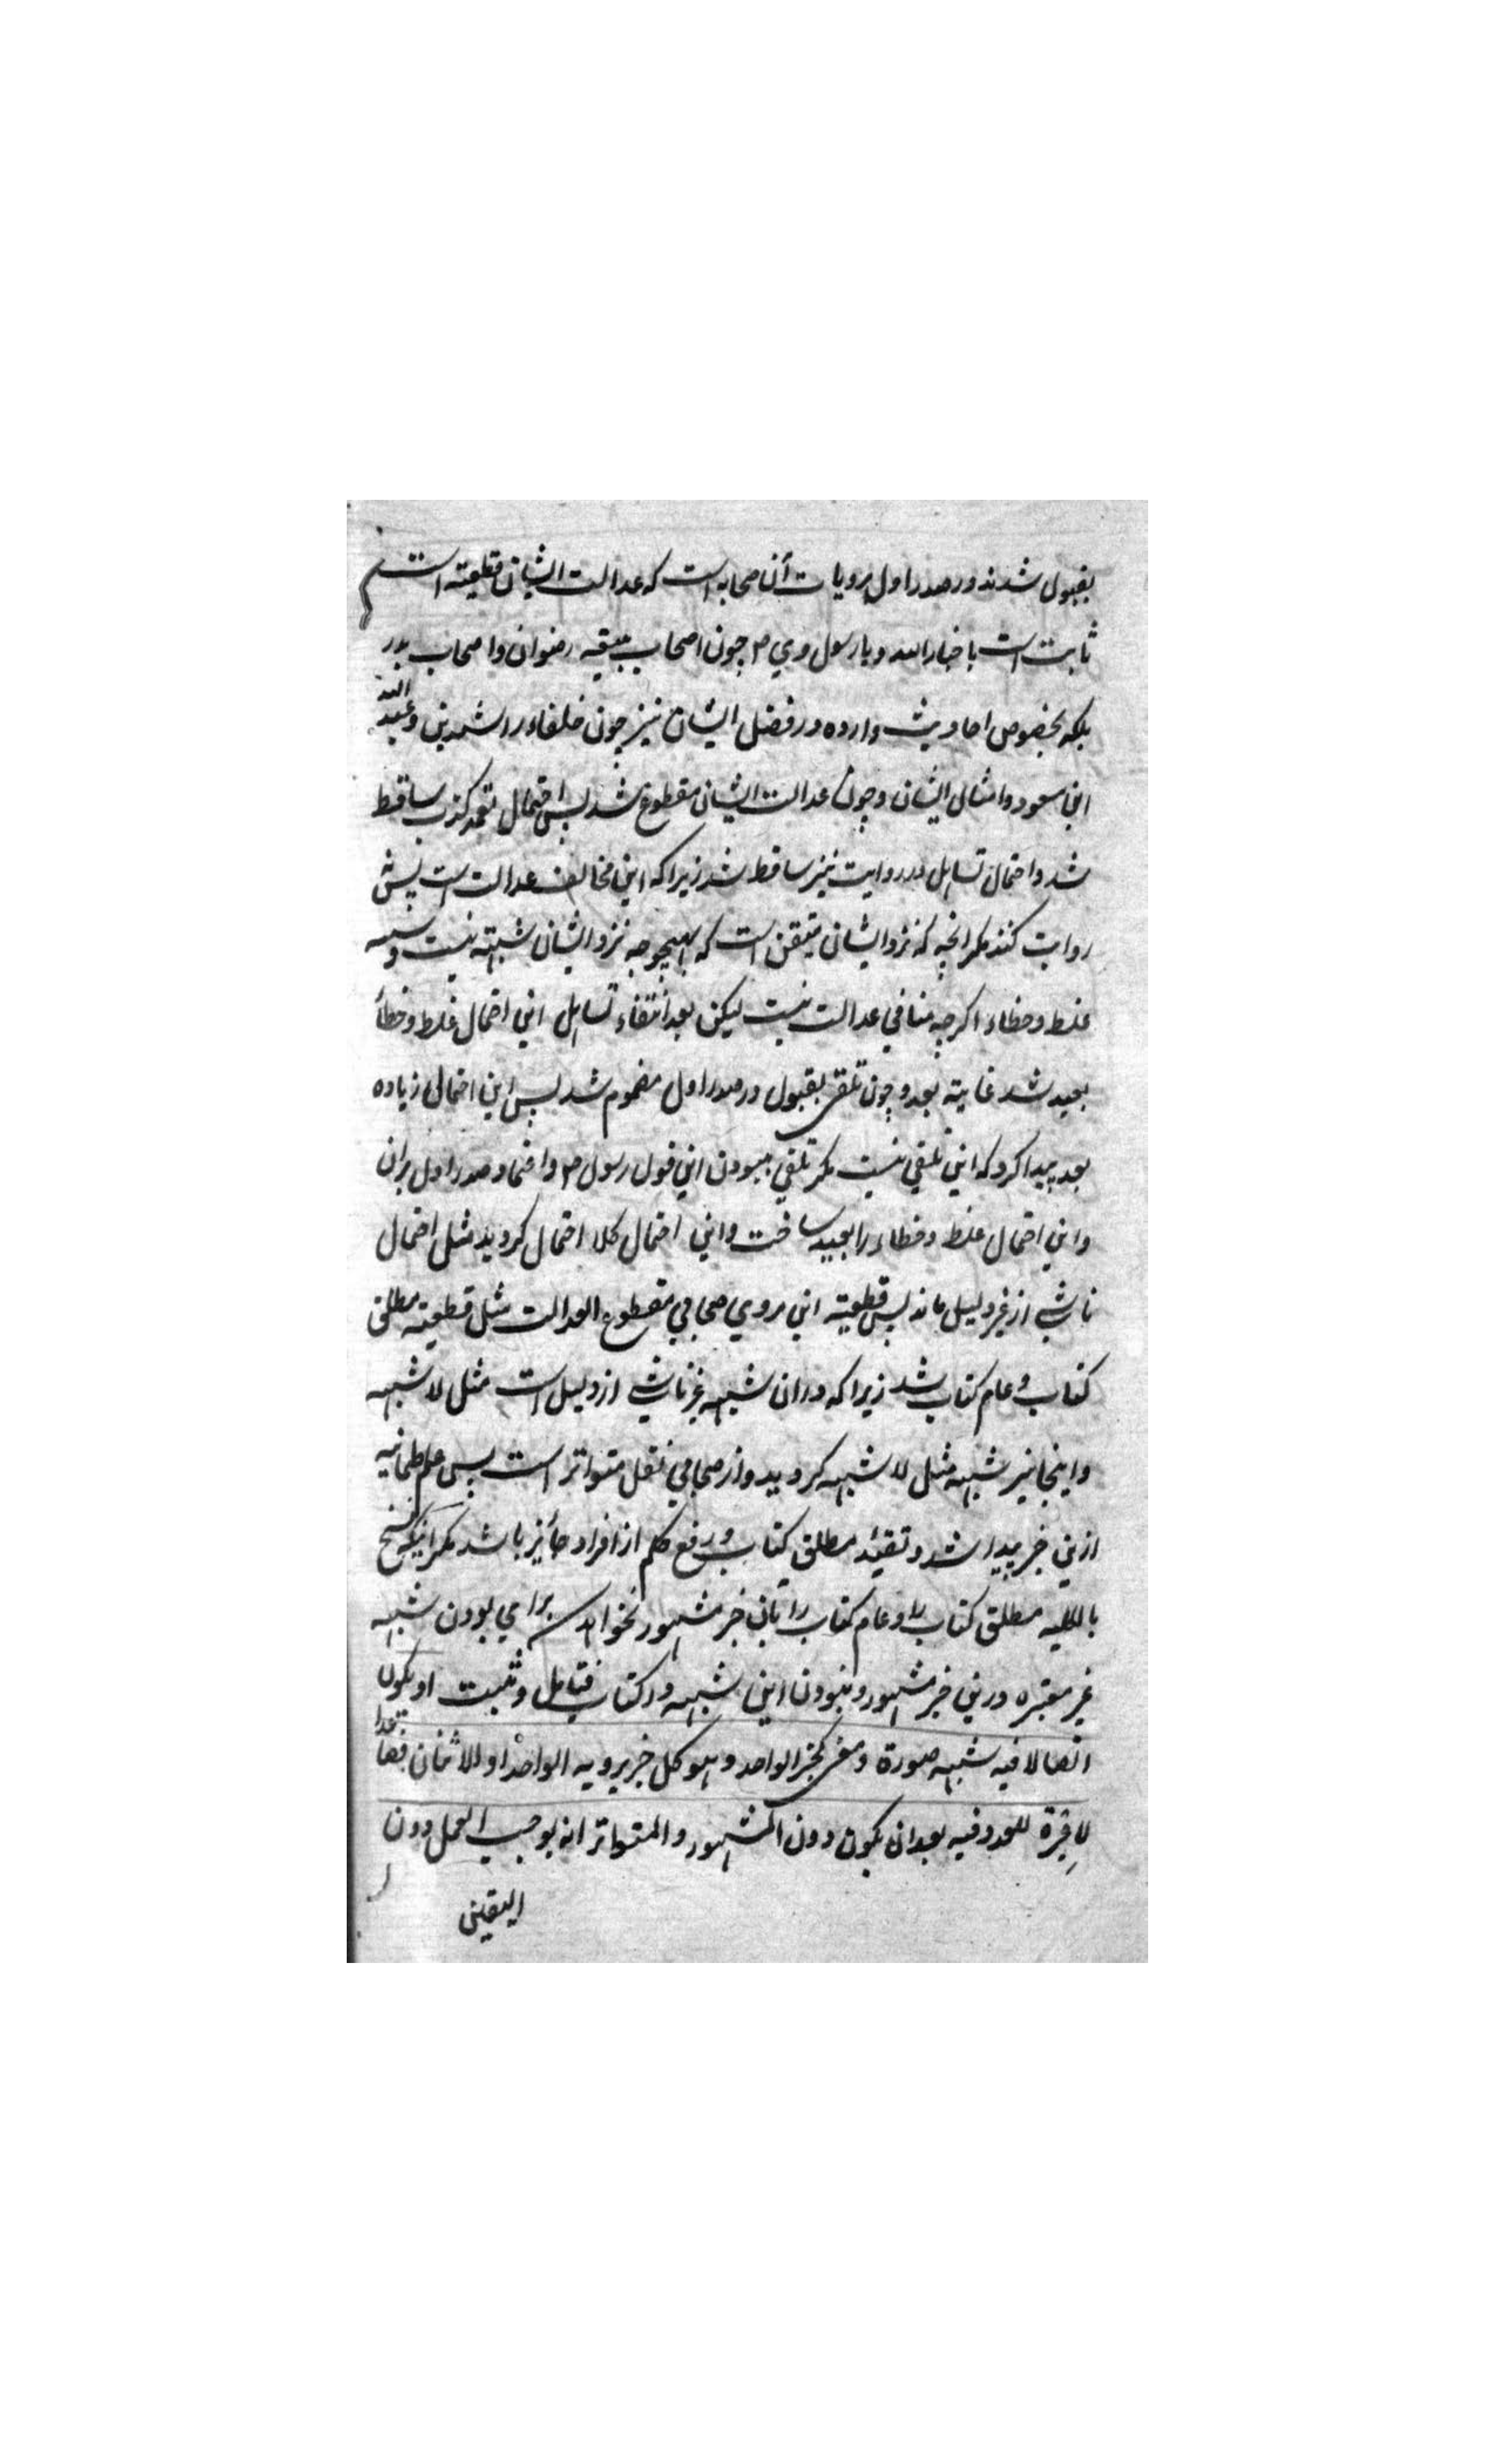 بقبول شدند در صدر اول مرویات آن صحابه است که عدالت ایشان قطعیه است
ثابت است باخبار الله و یا رسول وی ص چون اصحاب بیعة رضوان و اصحاب بدر
بلکه بخصوص احادیث وارده در فضل ایشان نیز چون خلفاء راشدین و عبد الله
ابن مسعود و امثال ایشان و چون عدالت ایشان مقطوع شد پس احتمال تعمد کذب ساقط
شد و احتمال تساهل در روایت نیز ساقط شد زیرا که این مخالف عدالت است پیش
روایت کنند مگر انچه که نزد ایشان متیقن است که بهیچوجه نزد ایشان شبهه نیست و
غلط و خطاء اگرچه منافی عدالت نیست لیکن بعد انتفاء تساهل این احتمال غلط و خطأ
بعید شد غایة بعد و چون تلقی بقبول در صدر اول مضموم شد پس این احتمال زیاده
بعد پیدا کرد که این تلقی نیست مگر تلقی ببودن این قول رسول ص و اعتماد صدر اول بران
و این احتمال غلط و خطاء را بعید ساخت و این احتمال کلا احتمال گردید مثل احتمال
ناشی از غیر دلیل ماند پس قطعیة این مروی صحابی مقطوع العدالت مثل قطعیة مطلق
کتاب و عام کتاب شد زیرا که دران شبهه غیر ناشی از دلیل است مثل لا شبهه
و اینجا نیز شبهه مثل لا شبهه گردید و از صحابی نقل متواتر است پس علم طمانیه
ازین خبر پیدا شد و تقیید مطلق کتاب و رفع حکم از افراد جائز باشد مگر اینکه نسخ
بالکلیه مطلق کتاب را و عام کتاب را باین خبر مشهور نخواهد برای بودن شبهه
غیر معتبره درین خبر مشهور و نبودن این شبهه در کتاب فتامل و تثبت او یکون
اتصالا فیه شبهه صورة و معنی کخبر الواحد و هو کل خبر یرویه الواحد او الاثنان فصاعدا
لا عبرة للعدد فیه بعد ان یکون دون المشهور و المتواتر انه یوجب العمل دون
الیقین